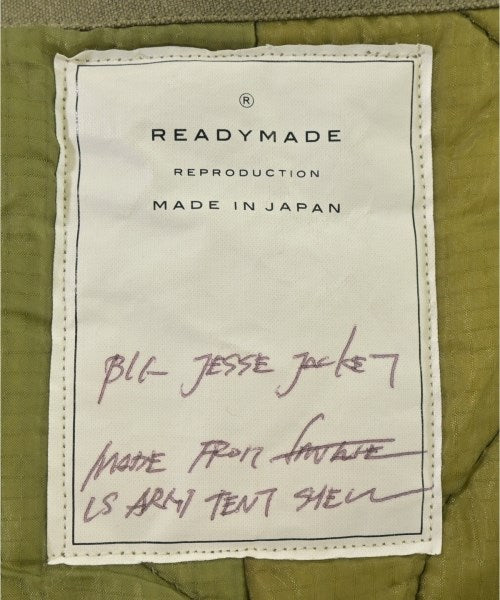 ®
READYMADE
REPRODUCTION
MADE IN JAPAN
BLK JESSE JACKET
MADE FROM
US ARMY TENT SHELL